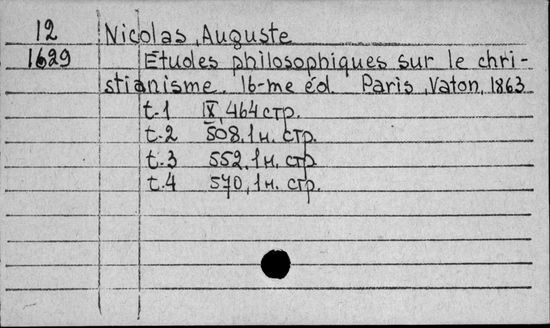 12 Nicolas, Auguste
1629 Etudes philosophiques sur le chri-
stianisme. 16-me éd. Paris, Vaton, 1863
t.1 IX, 464 стр.
t.2 508, 1 н. стр.
t.3 552, 1 н. стр.
t.4 570, 1 н. стр.